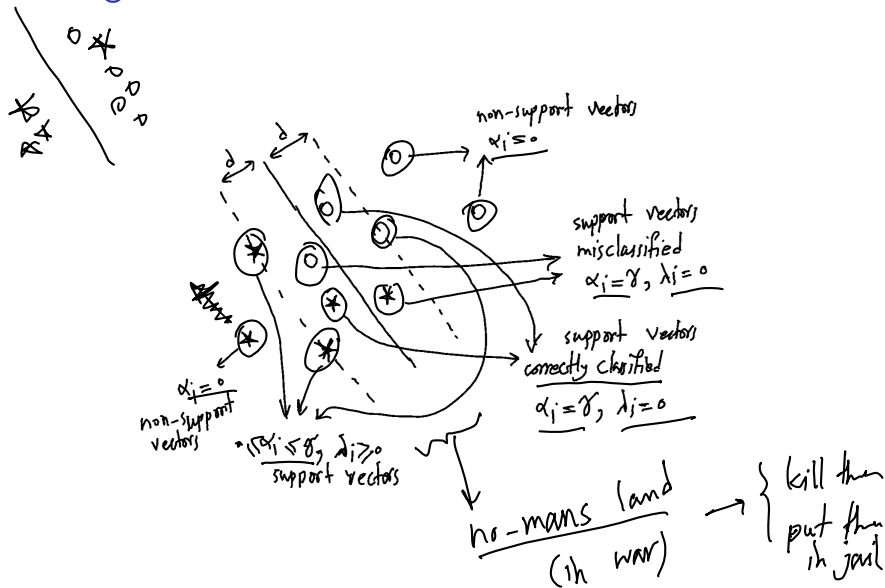 d
d
non-support vectors
αᵢ = 0
support vectors
misclassified
αᵢ = γ, λᵢ = 0
support vectors
correctly classified
αᵢ = γ, λᵢ = 0
αᵢ = 0
non-support
vectors
0 ≤ αᵢ ≤ γ, λᵢ ≥ 0
support vectors
no-mans land
(in war)
kill them
put them
in jail